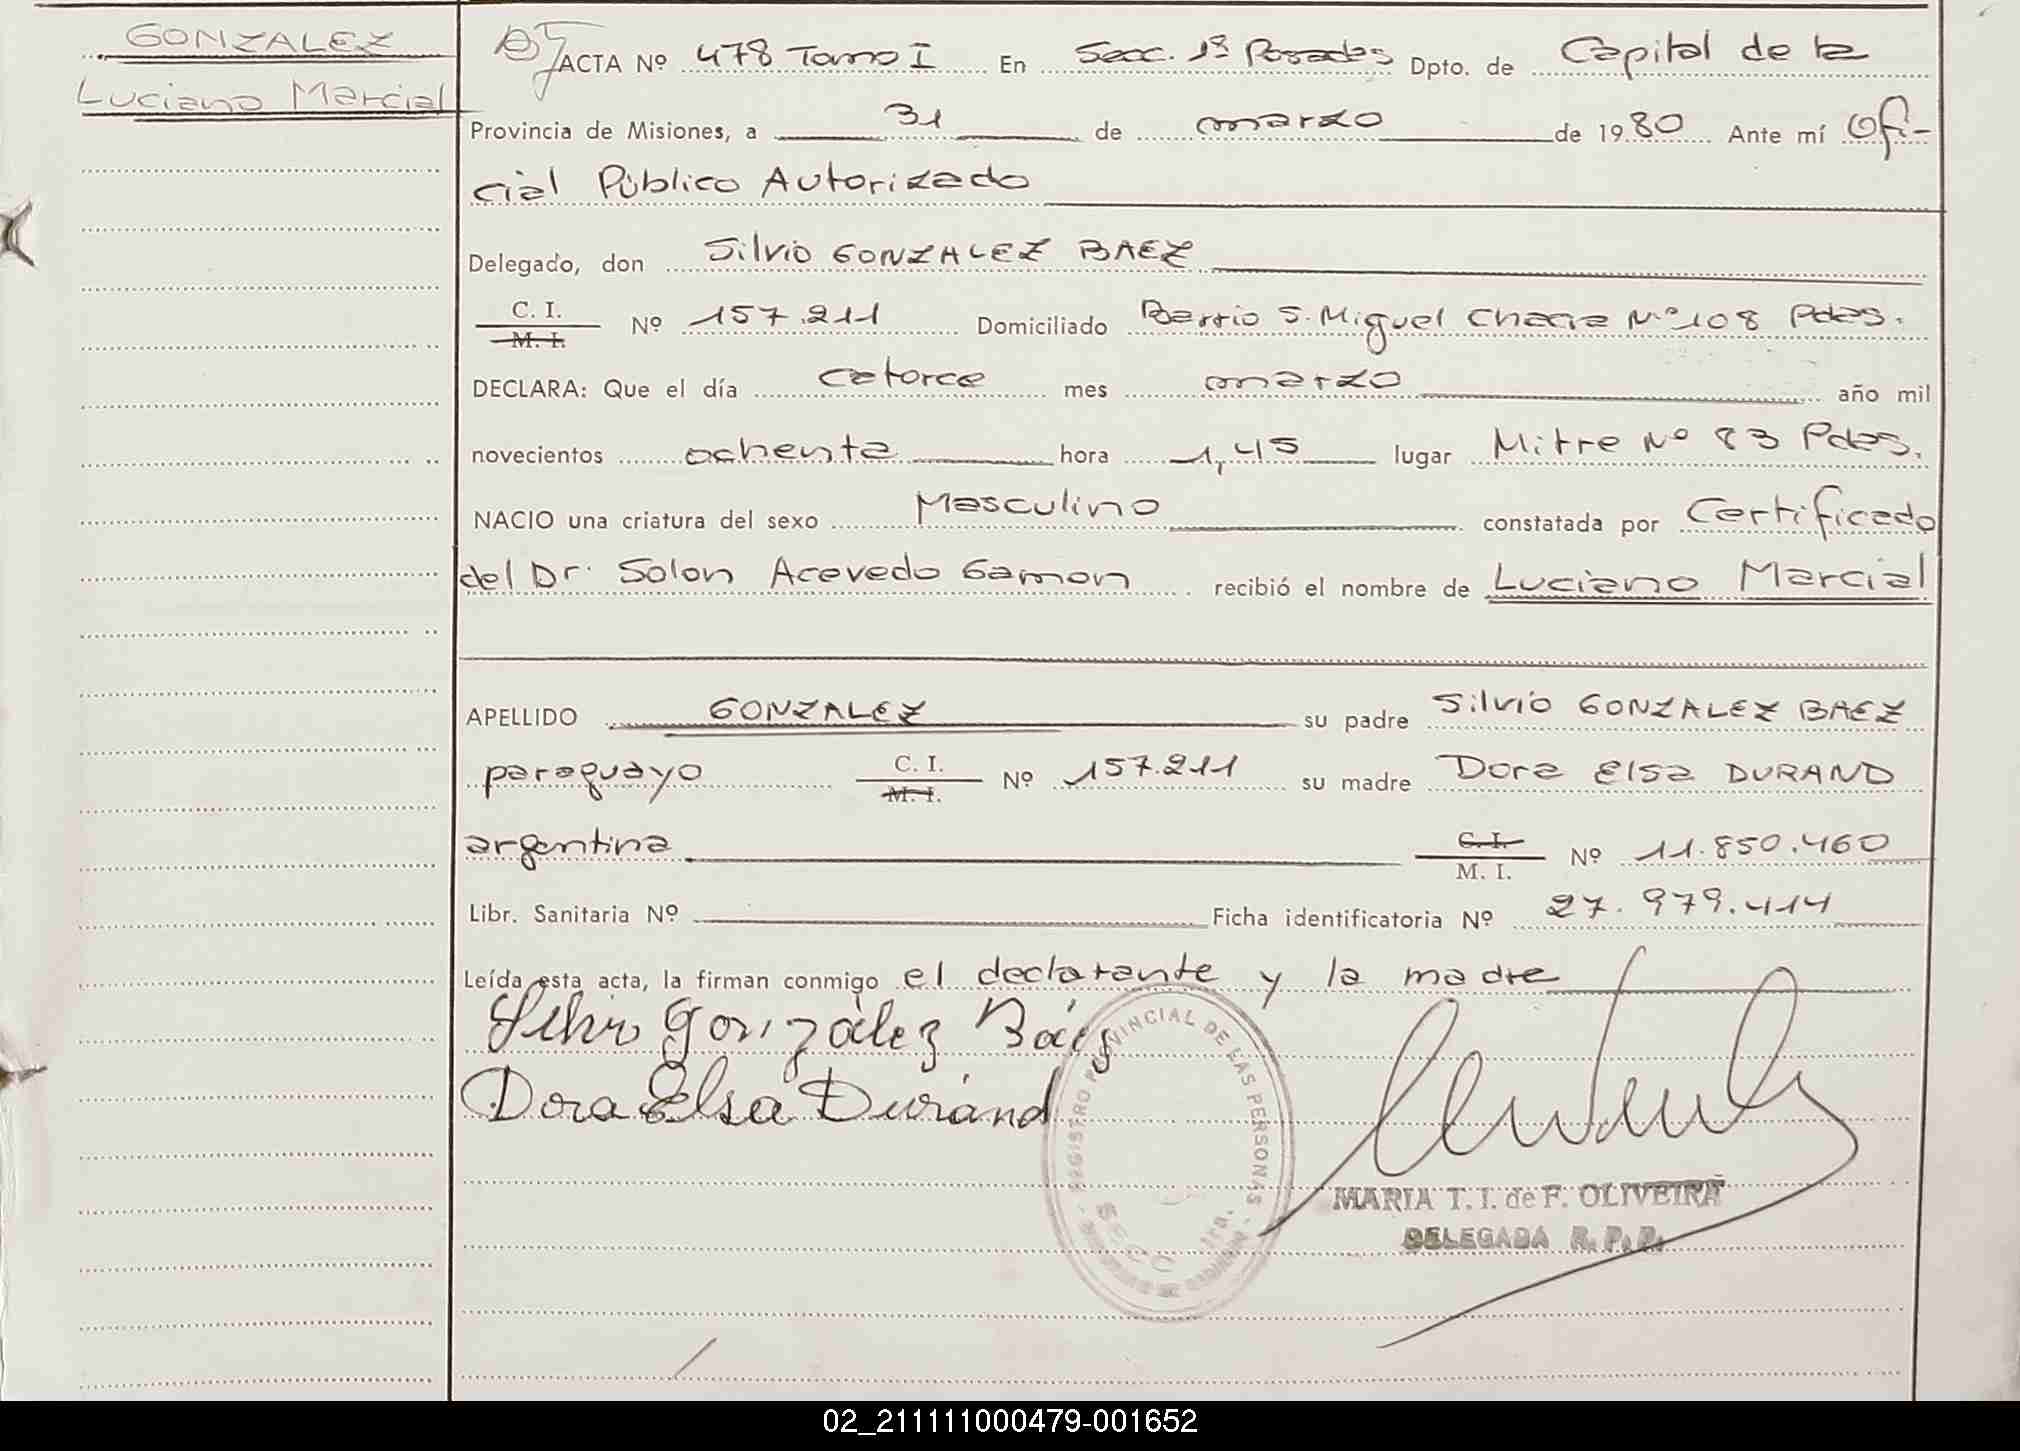 GONZALEZ
Luciano Marcial
ACTA Nº 478 Tomo I En Secc. 1ª Posadas Dpto. de Capital de la
Provincia de Misiones, a 31 de marzo de 1980 Ante mí Ofi-
cial Público Autorizado
Delegado, don Silvio GONZALEZ BAEZ
C. I.
M. I. Nº 157.211 Domiciliado Barrio S. Miguel Chacra Nº 108 Pdas.
DECLARA: Que el día catorce mes marzo año mil
novecientos ochenta hora 1,45 lugar Mitre Nº 83 Pdas.
NACIO una criatura del sexo Masculino constatada por Certificado
del Dr. Solon Acevedo Gamon recibió el nombre de Luciano Marcial
APELLIDO GONZALEZ su padre Silvio GONZALEZ BAEZ
paraguayo C. I.
M. I. Nº 157.211 su madre Dora Elsa DURAND
argentina C. I.
M. I. Nº 11.850.460
Libr. Sanitaria Nº Ficha identificatoria Nº 27.979.414
Leída esta acta, la firman conmigo el declarante y la madre
Silvio González Báez
Dora Elsa Duránd
REGISTRO PROVINCIAL DE LAS PERSONAS
SECC. 1ra.
MARIA T. I. de F. OLIVEIRA
DELEGADA R. P. P.
02_211111000479-001652